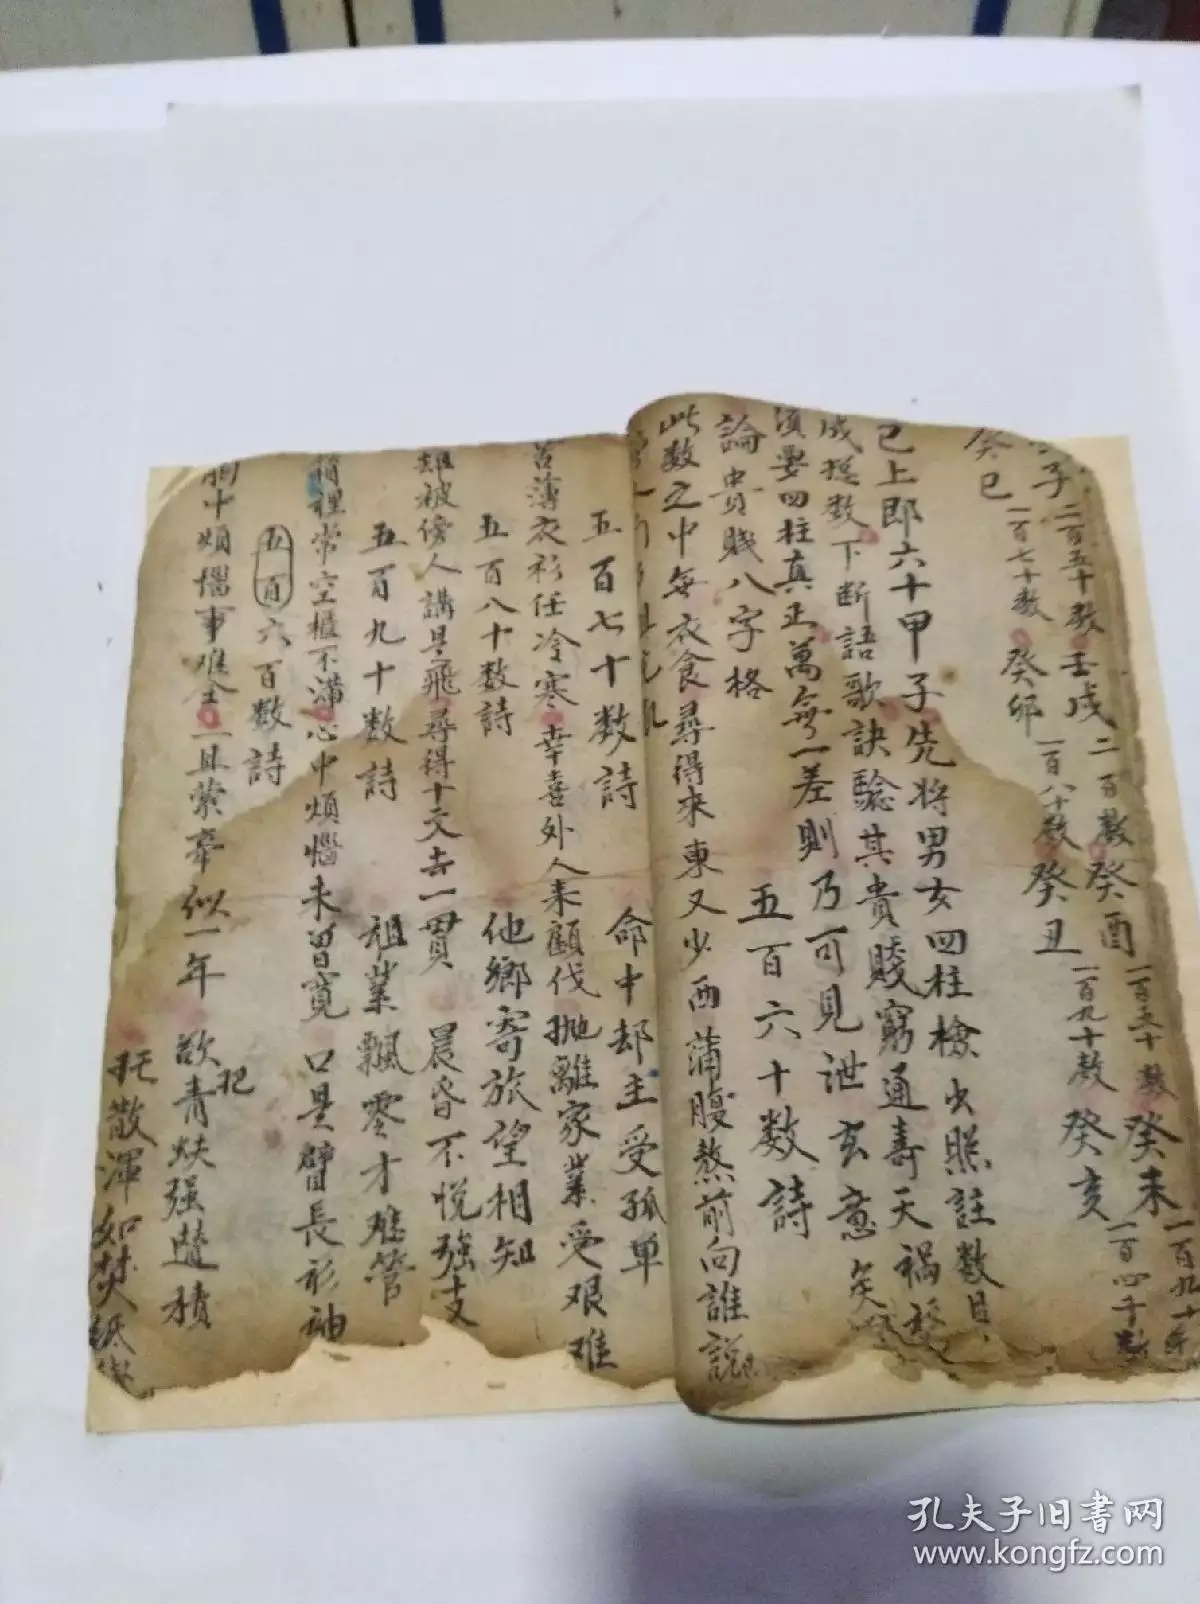 子 二百五十数 壬戌 二百数 癸酉 一百五十数 癸未 一百九十数
癸巳 一百七十数 癸卯 一百八十数 癸丑 一百九十数 癸亥 一百四十数
已上即六十甲子先将男女四柱檢出照註数目
成總数下断語歌訣驗其貴賤窮通壽夭禍
須要四柱真正萬無一差則乃可見泄玄意矣
論貴賤八字格
五百六十数詩
此数之中每衣食尋得來東又少西蒲腹熬煎向誰説
五百七十数詩
命中却主受孤单
苦薄衣衫任冷寒幸喜外人來顧伐抛離家業受艰难
五百八十数詩
他鄉寄旅望相知
雖被傍人講是飛尋得十文去一貫晨昏不悦強支
五百九十数詩
祖業飄零才难管
箱裡常空櫃不满心中煩惱未曾寛口是臂長衫袖
五百六百数詩
胸中煩惱事难全一旦縈牽似一年欲把青蚨强趲積
托散渾如焚紙
孔夫子旧书网
www.kongfz.com